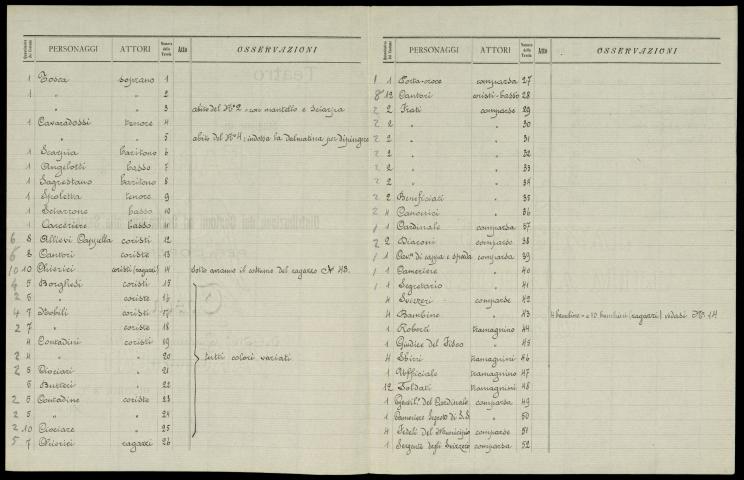 Quantitativo dei Costumi PERSONAGGI ATTORI Numero della Tavola Atto OSSERVAZIONI
1 Tosca soprano 1
1 " " 2
" " 3 abito del N° 2 con mantello e sciarpa
1 Cavaradossi tenore 4
" " 5 abito del N° 4; indossa la Dalmatina per dipingere
1 Scarpia baritono 6
1 Angelotti basso 7
1 Sagrestano baritono 8
1 Spoletta tenore 9
1 Sciarrone basso 10
1 Carceriere basso 11
6 8 Allievi Cappella coristi 12
6 8 Cantori coriste 13
10 10 Chierici coristi (ragazzi) 14 sotto avranno il costume del ragazzo N° 43.
4 5 Borghesi coristi 15
2 6 " coriste 16
4 7 Nobili coristi 17
2 7 " coriste 18
4 Contadini coristi 19
2 4 " " 20 tutti colori variati
2 5 Ciociari " 21
5 Butteri " 22
2 5 Contadine coriste 23
2 5 " " 24
2 10 Ciociare " 25
5 7 Chierici ragazzi 26
Quantitativo dei Costumi PERSONAGGI ATTORI Numero della Tavola Atto OSSERVAZIONI
1 1 Porta-croce comparsa 27
8 12 Cantori coristi-basso 28
2 2 Frati comparse 29
2 2 " " 30
2 2 " " 31
2 2 " " 32
2 2 " " 33
2 2 " " 34
2 2 Beneficiati " 35
2 4 Canonici " 36
1 1 Cardinale comparsa 37
2 2 Diaconi comparse 38
1 1 di cappa e spada comparsa 39
1 1 Cameriere " 40
1 1 Segretario " 41
4 Svizzeri comparse 42
4 Bambine " 43 4 bambine e 10 bambini (ragazzi) vedasi N° 14
1 Roberti tramagnino 44
1 Giudice del Fisco " 45
4 Sbirri tramagnini 46
1 Ufficiale tramagnino 47
12 Soldati tramagnini 48
1 del Cardinale comparsa 49
1 Cameriere Segreto di S.S. " 50
4 Fedeli del Municipio comparse 51
1 Sergente degli Svizzeri comparsa 52